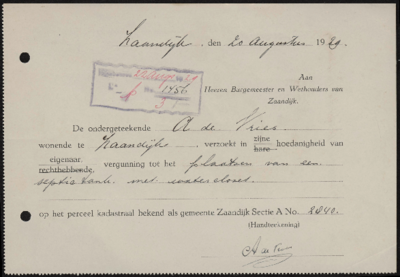 Zaandijk, den 20 Augustus 1929.
Aan
Heeren Burgemeester en Wethouders van
Zaandijk.
No. 1456
De ondergeteekende A de Vries
wonende te Zaandijk, verzoekt in zijne hoedanigheid van
hare
eigenaar.
rechthebbende, vergunning tot het plaatsen van een
septic tank met watercloset.
op het perceel kadastraal bekend als gemeente Zaandijk Sectie A No. 2340.
(Handteekening)
A de Vries